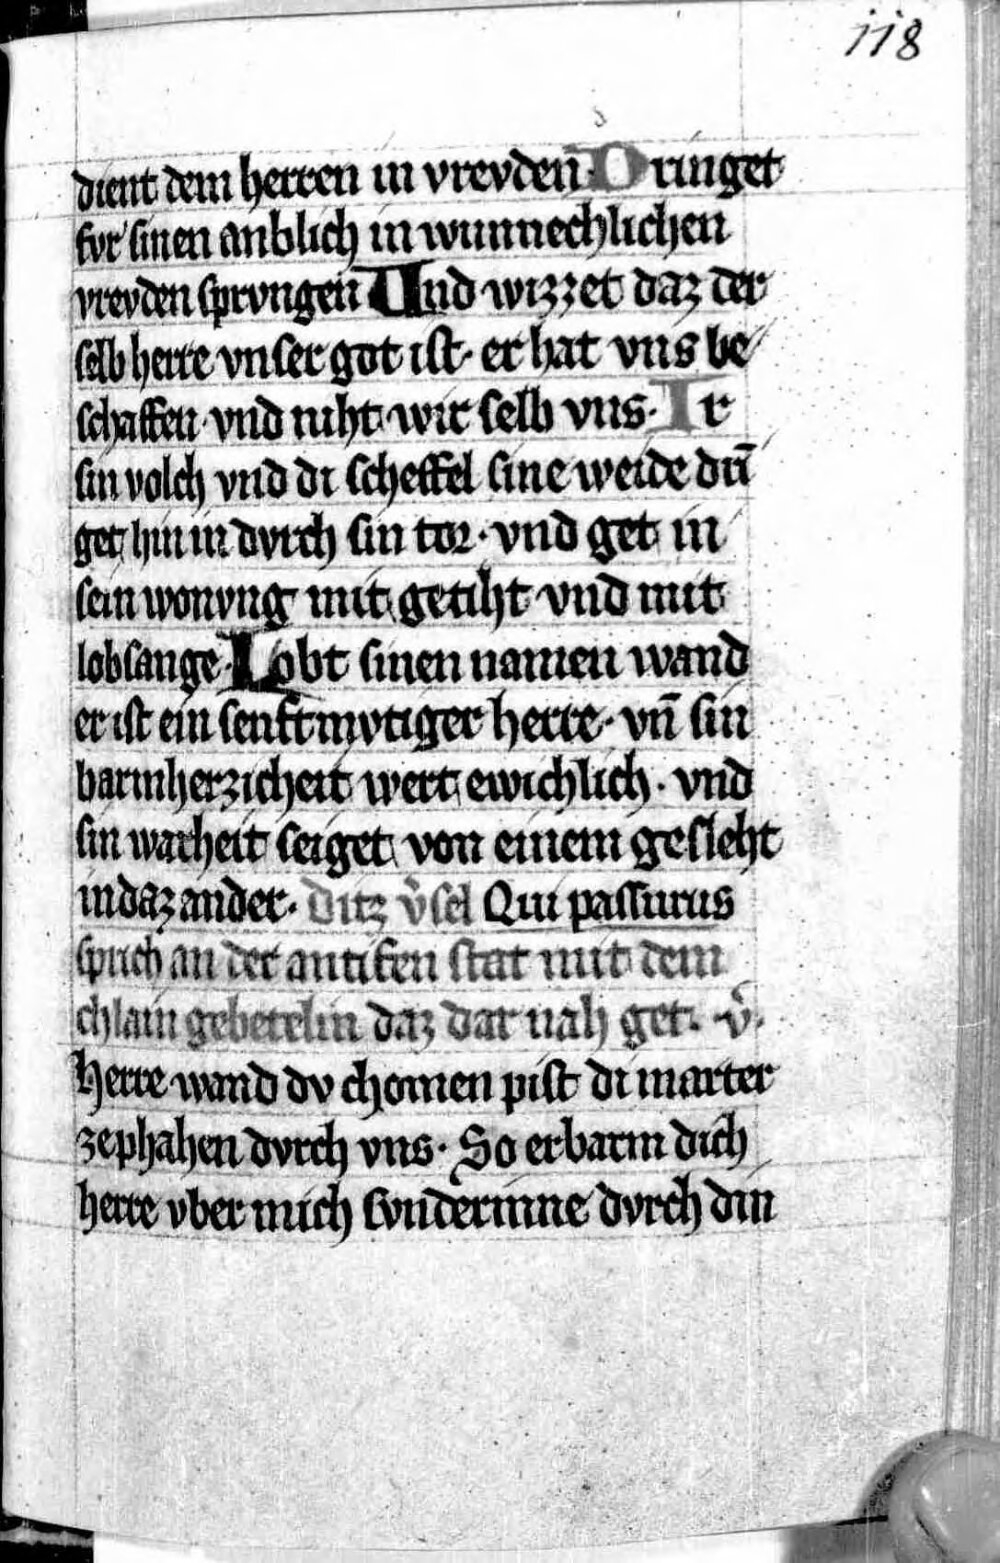 118
dient dem herren in vrevden. Dringet
fvr sinen anblich in wunnechlichen
vrevden sprvngen Und wizzet daz der
selb herre vnser got ist· er hat vns be
schaffen· vnd niht wir selb vns· Ir
sin volch vnd di scheffel sine weide dri͞
get hin in dvrch sin tor· vnd get in
sein wonvng mit getiht vnd mit
lobsange· Lobt sinen namen wand
er ist ein senftmvtiger herre· vn̄ sin
barmherzicheit wert ewichlich· vnd
sin warheit seiget von einem gesleht
in daz ander· Ditz v̓sel Qui passurus
sprich an der antifen stat mit dem
chlain gebetelin daz dar nah get. v̓.
Herre wand dv chomen pist di marter
ze phahen dvrch vns· So erbarm dich
herre vber mich svnderinne dvrch din